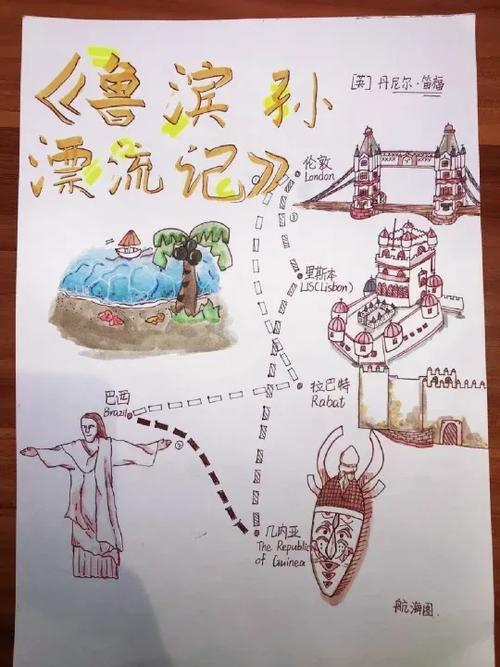 《鲁滨孙
漂流记》
[英]丹尼尔·笛福
伦敦
London
①
里斯本
LIS(Lisbon)
拉巴特
Rabat
巴西
Brazil
②
几内亚
The Republic
of Guinea
航海图.